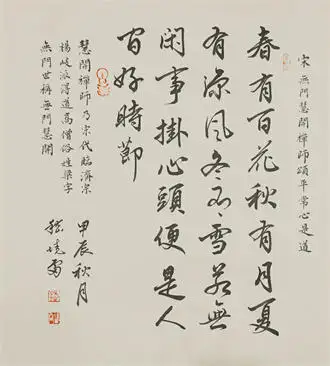 宋無門慧開禪師頌平常心是道
春有百花秋有月夏
有涼風冬有雪若無
閑事掛心頭便是人
間好時節
慧開禪師乃宋代臨濟宗
楊岐派得道高僧俗姓梁字
無門世稱無門慧開
甲辰秋月